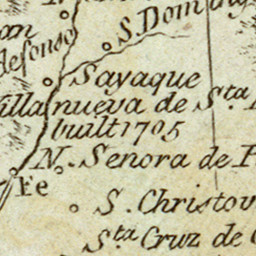 S. Doming
an
defonso
Sayaque
Villa nueva de Sta.
built 1705
N. Senora de
Fe
S. Christov
Sta. Cruz de